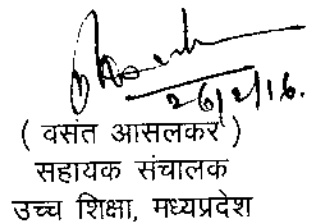 26/2/16.
( वसंत आसलकर )
सहायक संचालक
उच्च शिक्षा, मध्यप्रदेश